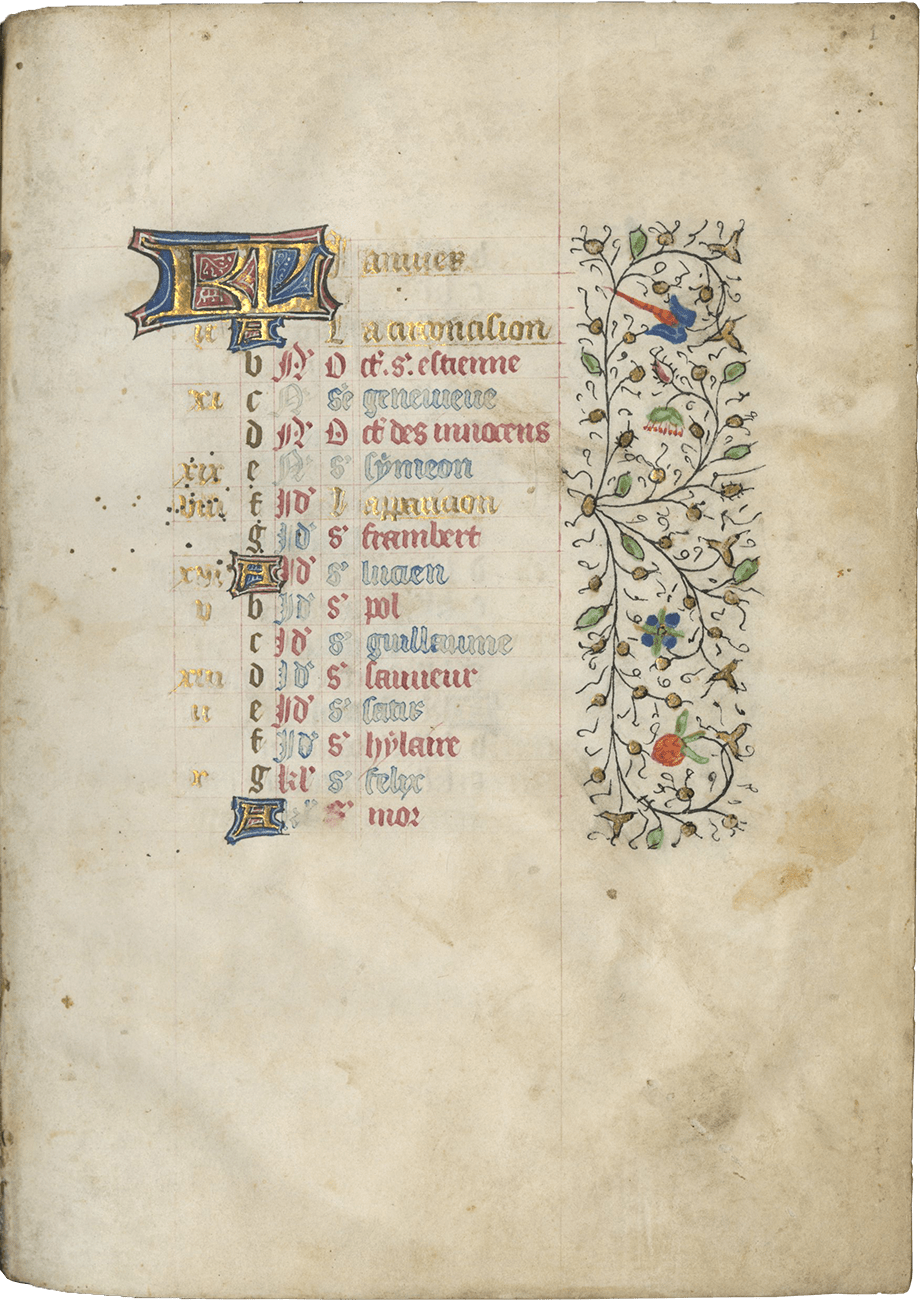 1
KL Januier
iii A La circoncision
b N O ct. s. estienne
xi c N se geneuieue
d N O ct des innocens
xix e N s symeon
viii f Id L apparicion
g Id s frambert
xvi A Id s lucien
v b Id s pol
c Id s guillaume
xiii d Id s sauueur
ii e Id s satir
f Id s hylaire
x g kl s felix
A kl s mor